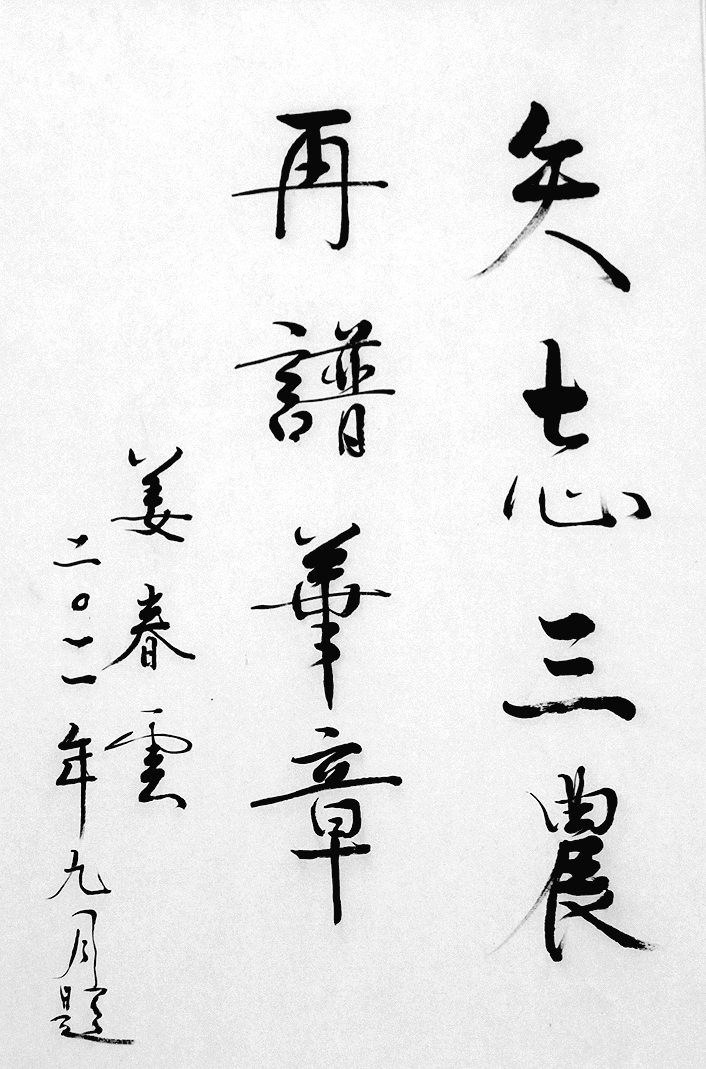 矢志三農
再譜華章
姜春雲
二〇一一年九月題